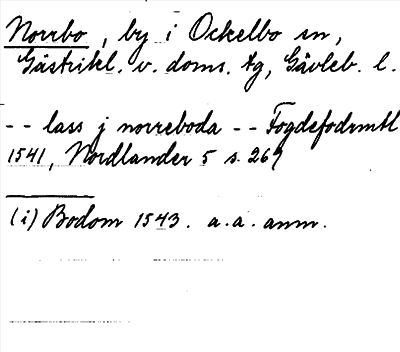 Norrbo, by i Ockelbo sn,
Gästrikl. v. doms. tg, Gävleb. l.
-- lass j norreboda -- Fogdefodrmtl
1541, Nordlander 5 s. 267
(i) Bodom 1543. a.a. anm.